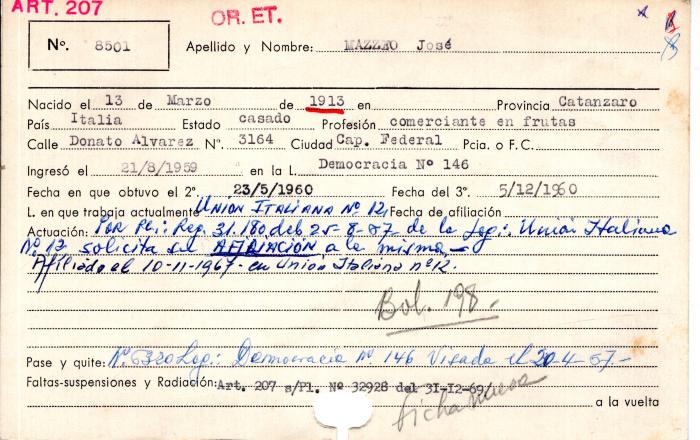 ART. 207
OR. ET.
Nº. 8501 Apellido y Nombre: MAZZEO José
Nacido el 13 de Marzo de 1913 en Provincia Catanzaro
País Italia Estado casado Profesión comerciante en frutas
Calle Donato Alvarez Nº. 3164 Ciudad Cap. Federal Pcia. o F.C.
Ingresó el 21/8/1959 en la L. Democracia Nº 146
Fecha en que obtuvo el 2º. 23/5/1960 Fecha del 3º. 5/12/1960
L. en que trabaja actualmente UNIÓN ITALIANA Nº 12, Fecha de afiliación
Actuación: POR Pl: Reg. 31.180 del 25-8-87 de la Log:. Unión Italiana
Nº 12 solicita su AFILIACIÓN a la misma.-
Afiliado el 10-11-1967- en Unión Italiana nº 12.
Bol. 198.
Pase y quite: Nº 6320 Log:. Democracia Nº. 146 Visada el 20-4-67.-
Faltas-suspensiones y Radiación: Art. 207 s/Pl. Nº 32928 del 31-12-69/
ficha nueva
a la vuelta